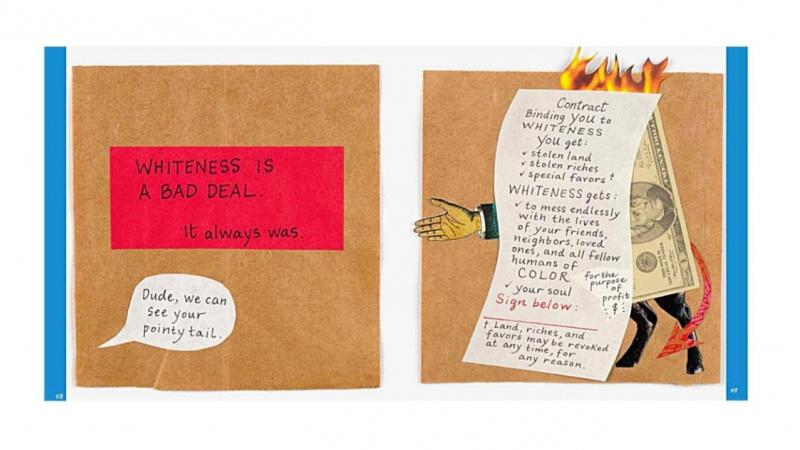 WHITENESS IS
A BAD DEAL.
It always was.
Dude, we can
see your
pointy tail.
Contract
Binding YOU to
WHITENESS
You get:
✓ stolen land
✓ stolen riches
✓ special favors†
WHITENESS gets:
✓ to mess endlessly
with the lives
of your friends,
neighbors, loved
ones, and all fellow
humans of
COLOR
for the
purpose
of
profit
$
✓ your soul
Sign below:
† Land, riches, and
favors may be revoked
at any time, for
any reason.